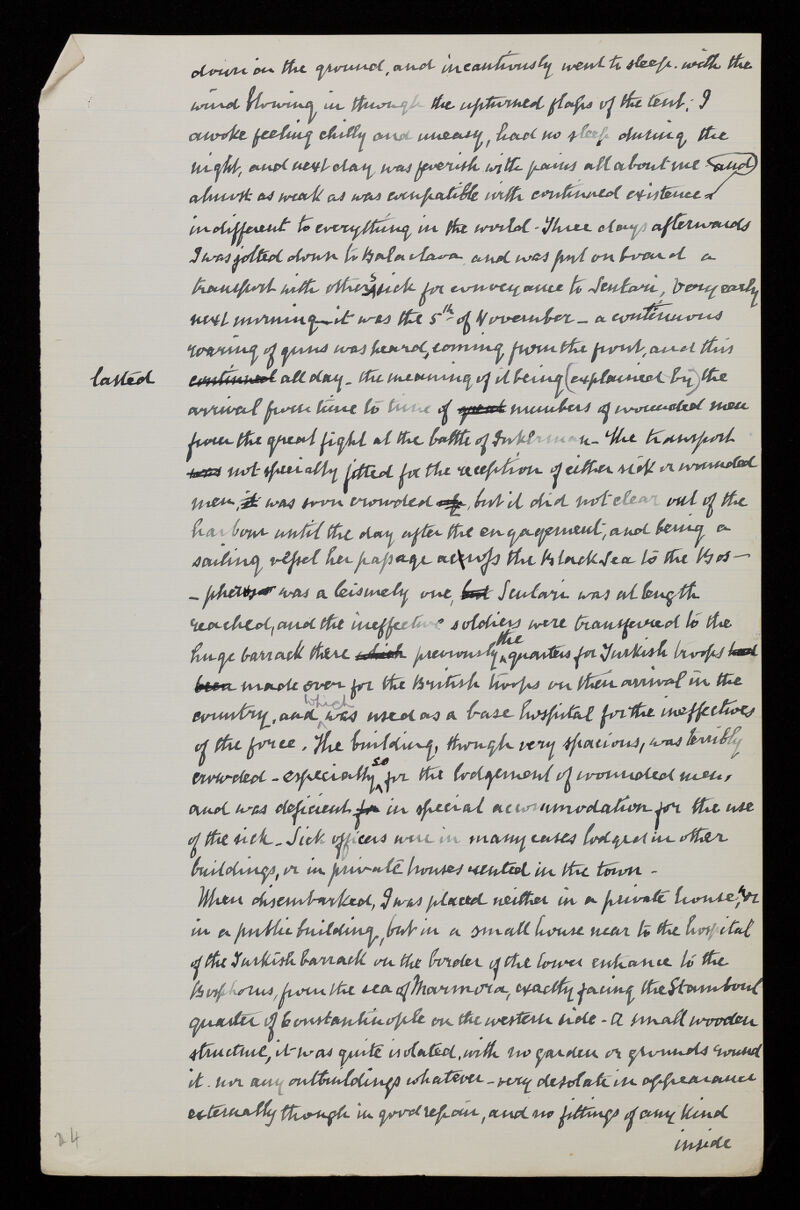 down on the ground, and incautiously went to sleep. with the
wind blowing in through the upturned flaps of the tent; I
awoke feeling chilly and uneasy, had no sleep during the
night, and next day was feverish with pains all about me and
almost as weak as was compatible with continued existence
indifferent to everything in the world - Three days afterwards
I was jolted down to Balaclava and was put on board a
transport with others sick for conveyance to Scutari, Very early
next morning - it was the 5th of November - a continuous
roaring of guns was heard, coming from the front, and this
lasted
continued all day - the meaning of it being (explained by) the
arrival from time to time of great numbers of wounded men
from the great fight at the battle of Inkerman - The transport
was not specially fitted for the reception of either sick or wounded
men, it was soon crowded up, but it did not clear out of the
harbour until the day after the engagement, and being a
sailing vessel her passage across the Black Sea to the Bos-
-phorus was a leisurely one, but Scutari was at length
reached, and the ineffective soldiers were transferred to the
huge barrack there which previously the quarters for Turkish troops had
been made over for the British troops on their arrival in the
country, and which was used as a base hospital for the ineffectives
of the force. The building, though very spacious, was terribly
crowded - especially so for the lodgement of wounded men,
and was deficient for in special accommodation for the use
of the sick - Sick officers were in many cases lodged in other
buildings, or in private houses rented in the town -
When disembarked, I was placed neither in a private house, nor
in a public building, but in a small house near to the hospital
of the Turkish barrack on the border of the lower entrance to the
Bosphorus, from the sea of Marmora, exactly facing the Stamboul
quarter of Constantinople on the western side - A small wooden
structure, it was quite isolated, with no garden or grounds round
it. nor any outbuildings whatever - very desolate in appearance
externally though in good repair, and no fittings of any kind
inside
24